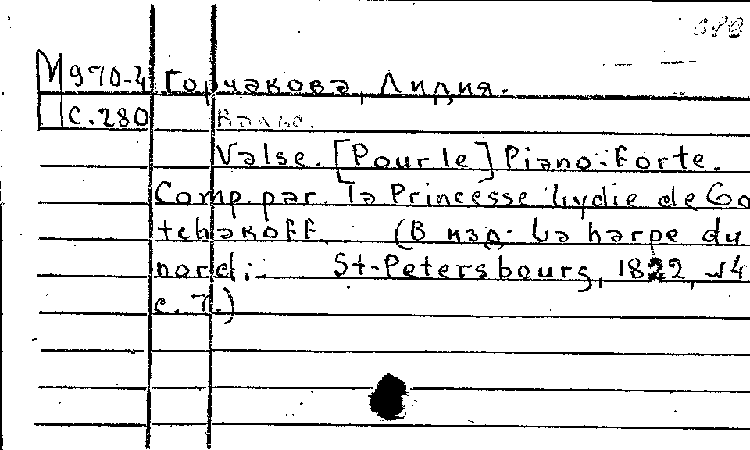 М 970-4 Горчакова, Лидия.
с. 280 Вальс.
Valse. [Pour le] Piano-Forte.
Comp. par la Princesse Lydie de Go
tchakoff. (В изд: La harpe du
nord; St-Petersbourg, 1822, №4
с. 7.)